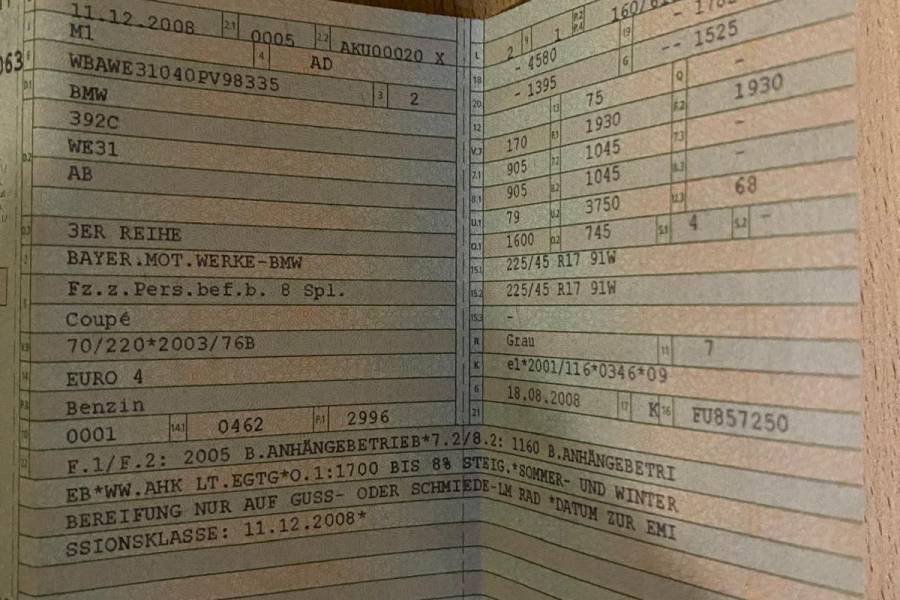 11.12.2008 2.1 0005 2.2 AKU00020 X
M1 4 AD
WBAWE31040PV98335 3 2
BMW
392C
WE31
AB
3ER REIHE
BAYER.MOT.WERKE-BMW
Fz.z.Pers.bef.b. 8 Spl.
Coupé
70/220*2003/76B
EURO 4
Benzin
0001 14.1 0462 P.1 2996
L 2 9 1
18 - 4580 19 - 1785
20 - 1395 G -- 1525
12 - 13 75 Q -
V.7 170 F.1 1930 F.2 1930
7.1 905 7.2 1045 7.3 -
8.1 905 8.2 1045 8.3 -
U.1 79 U.2 3750 U.3 68
O.1 1600 O.2 745 S.1 4 S.2 -
15.1 225/45 R17 91W
15.2 225/45 R17 91W
15.3 -
R Grau 11 7
K e1*2001/116*0346*09
6 18.08.2008 17 K 16 FU857250
21
F.1/F.2: 2005 B.ANHÄNGEBETRIEB*7.2/8.2: 1160 B.ANHÄNGEBETRI
EB*WW.AHK LT.EGTG*O.1:1700 BIS 8% STEIG.*SOMMER- UND WINTER
BEREIFUNG NUR AUF GUSS- ODER SCHMIEDE-LM RAD *DATUM ZUR EMI
SSIONSKLASSE: 11.12.2008*